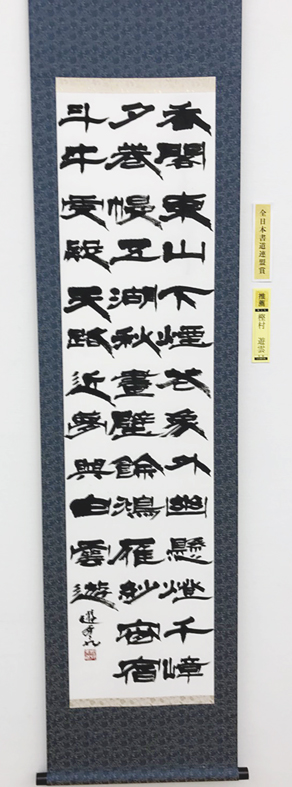 香閣東山下煙花象外幽懸燈千嶂
夕卷幔五湖秋畫壁餘鴻雁紗窗宿
斗牛更疑天路近夢與白雲遊
全日本書道連盟賞
推薦
樫村 遊雲